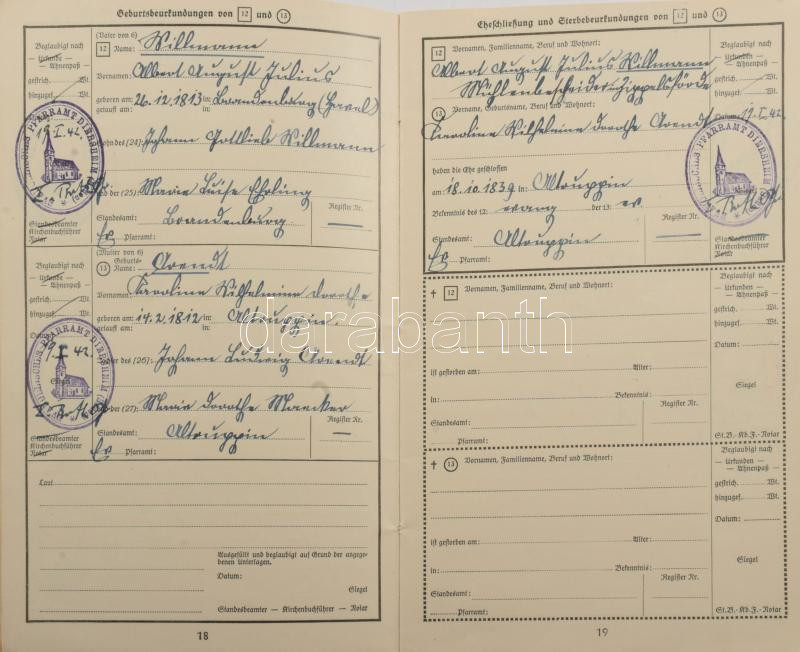 Geburtsbeurkundungen von 12 und 13
Beglaubigt nach
— Urkunde —
— Ahnenpaß —
gestrich. Wt.
hinzugef. Wt.
19.I.42.
Standesbeamter
Kirchenbuchführer
Notar
(Vater von 6)
12 Name: Willmann
Vornamen: Albert August Julius
geboren am 26.12.1813 in: Brandenburg (Havel)
getauft am: in:
Sohn des (24): Johann Gottlieb Willmann
und der (25): Marie Luise Ehrling
Standesamt: Brandenburg
Register Nr.
Ev Pfarramt:
Beglaubigt nach
— Urkunde —
— Ahnenpaß —
gestrich. Wt.
hinzugef. Wt.
19.I.42.
Siegel
Standesbeamter
Kirchenbuchführer
Notar
(Mutter von 6)
13 Geburts-Name: Arendt
Vornamen: Karoline Wilhelmine Dorothe
geboren am: 14.2.1812 in: Altruppin.
getauft am: in:
des (26): Johann Ludwig Arendt
der (27): Marie Dorothe Maecker
Register Nr.
Standesamt: Altruppin
Ev Pfarramt:
Laut
Ausgefüllt und beglaubigt auf Grund der angege-
benen Unterlagen.
Datum:
Siegel
Standesbeamter — Kirchenbuchführer — Notar
18
Eheschließung und Sterbebeurkundungen von 12 und 13
12 Vornamen, Familienname, Beruf und Wohnort:
Albert August Julius Willmann
Mühlenbescheider Zippelsförde
13 Vornamen, Geburtsname, Beruf und Wohnort:
Karoline Wilhelmine Dorothe Arendt
haben die Ehe geschlossen
am 18.10.1839 in: Altruppin
Bekenntnis des 12: evang der 13: ev
Standesamt: Altruppin
Register Nr.
Ev Pfarramt:
Beglaubigt nach
— Urkunden —
— Ahnenpaß —
gestrich. Wt.
hinzugef. Wt.
Datum: 19.I.42.
Standesbeamter
Kirchenbuchführer
Notar
† 12 Vornamen, Familienname, Beruf und Wohnort:
ist gestorben am: Alter:
in: Bekenntnis:
Standesamt:
Register Nr.
Pfarramt:
Beglaubigt nach
— Urkunden —
— Ahnenpaß
gestrich. Wt.
hinzugef. Wt.
Datum:
Siegel
St.B.-Kb.F.-Notar
† 13 Vornamen, Familienname, Beruf und Wohnort:
ist gestorben am: Alter:
in: Bekenntnis:
Standesamt:
Register Nr.
Pfarramt:
Beglaubigt nach
— Urkunden
— Ahnenpaß —
gestrich. Wt.
hinzugef. Wt.
Datum:
Siegel
St.B.-Kb.F.-Notar
19
darabanth